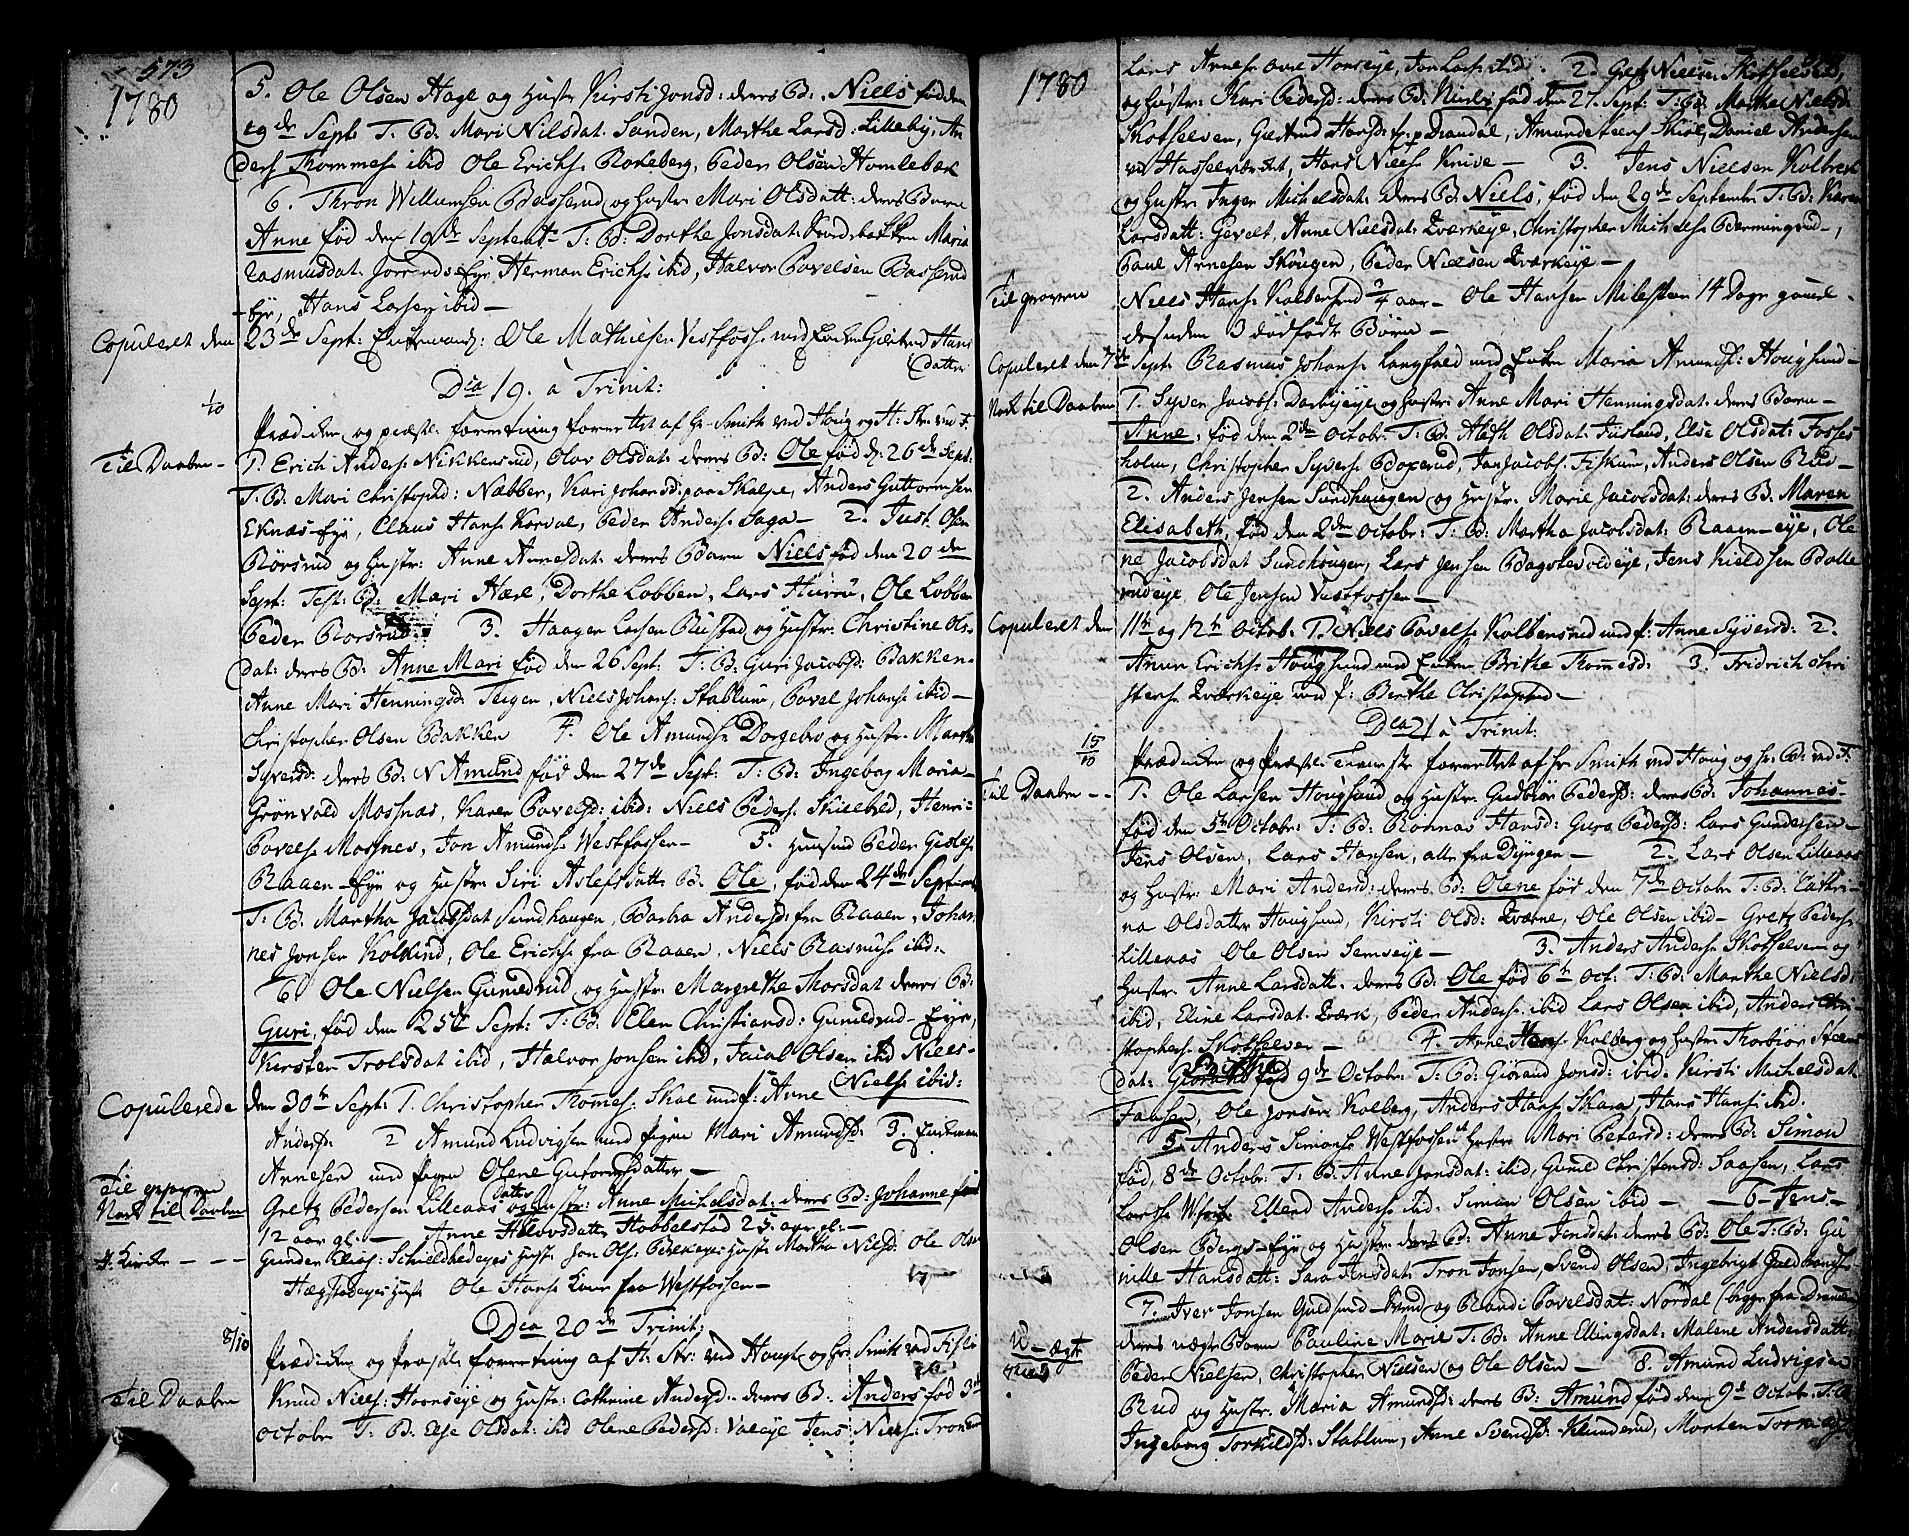 573
1780
5. Ole Olsen Hage og Hustr Kirsti Jonsd: deres B: Niels fød den
19de Sept T: B: Mari Nilsdat Sanden, Marthe Larsd: Lilleby, An
ders Thommes: ibid Ole Erichs: Rokeberg, Peder Olsen Homlebek
6. Thron Willumsen Basserud og Hustr Mari Olsdatt: deres Barn
Anne fød den 19de Septembr T: B: Dorthe Jonsdat: Maria
Rasmusdat: Eye Herman Erichs: ibid, Halvor Povelsen Basserud
Eye, Hans Larsen ibid –
Copuleret den 23de Sept: Enkemand: Ole Mathiesen Vestfosse med Enken Giertrud Hans
datter
Dca 19. à Trinit:
1/10
Prædiken og præstl: forretning forrettet af Hr Smith ved Houg og H. Str: ved F.
Til Daaben – 1. Erich Anders: Nikkensrud, Olov Olsdat: deres B: Ole fød d: 26de Sept:
T: B: Mari Christophd: Næbber, Kari Johansd: paa Skalpe, Anders Guttormsen
Eknæs-Eye, Claus Hans: Korval, Peder Anders: Saga – 2. Just Olsen
Børsrud og Hustr: Anne Arnesdat: deres Barn Niels fød den 20de
Sept: Test: B: Mari Hære, Dorthe Lobben, Lars Hurru, Ole Lobben
Peder Børsrud. 3. Haagen Larsen Rustad og Hustr: Christine Ols-
dat: deres B: Anne Mari fød den 26 Sept: T: B: Guri Jacobsd: Bakken-
Anne Mari Henningsd: Teigen, Niels Johans: Stablum, Povel Johans: ibid –
Christopher Olsen Bakken 4. Ole Amunds: Dorgebro og Hustr: Marthe
Syversd: deres B: N Amund fød den 27de Sept: T: B: Ingeborg Maria
Grønvold Mossnæs, Karen Povelsd: ibid: Niels Peders: Skillebed, Henri-
Povels: Mosnes, Jon Amunds: Westfossen – 5. Huusmd Peder Gisles:
Raaen-Eye og Hustr Siri Aslefsdatt: B: Ole, fød den 24de Septemb
T: B: Martha Jacobsdat Sundhaugen, Barbra Andersd: fra Raaen, Johan
nes Jonsen Kolkind, Ole Erichs: fra Raaen, Niels Rasmus: ibid:
6. Ole Nielsen Gunildrud og Hustr: Margrethe Thorsdat deres B:
Guri, fød den 25de Sept: T: B: Elen Christiansd: Gunildrud-Eye,
Kirsten Trolsdat ibid, Halvor Jonsen ibid, Jacob Olsen ibid Niels-
Niels: ibid:
Copulerede den 30te Sept: 1. Christopher Thomes: Skal med f: Anne
Andersd: 2 Amund Ludvigsen med pigen Mari Amundsd: 3. Enkemand
Arnesen med pigen Olene Gutormsdatter –
Til graven
Gretz Pedersen Lilleaas og Hustr: Anne Michelsdat: deres B: Johanne
Nock til Daaben 12 aar gl. – Anne Halvorsdatter Hobbelstad 25 aar gl. –
H. Kirke – – – Gunder Elias: Schieldbedeyes Hustr Jon Ols: Bekkeyes Hustr Martha Nilsd: Ole Ols:
Hægstadeyes Hustr Ole Hans: fra Westfossen –
Dca 20de Trinit:
8/10
Prædiken og Præstl: forretning af H: Str: ved Hougs og Hr: Smith ved Fiskum
Til Daaben Knud Niels: Hornseye og Hustr: Cathrine Andersd: deres B: Anders fød 3de
October T: B: Else Olsdat: ibid Olene Pedersd: Valeye Jens Niels: Tronrud
1780
Lars Arnes: Hornseye, Jon Lars: ibid. 2. Gretz Nielsen Skotselven,
og Hustr: Kari Pedersd: deres B: Niels fød den 27 Sept: T: B: Marthe Nielsd:
Skotselven, Giertrud Hansd: Amund Steens: Skiøl, Daniel Andersen
ved Hasselværket, Hans Niels: Knive – 3. Jens Nielsen Kolbrek
og Hustr Inger Michelsdat deres B: Niels, fød den 29de September T: B: Karen
Larsdatt: Gevelt, Anne Nielsdat: Qværkeye, Christopher Michels: Bermingrud –,
Paul Arnesen Skougen, Peder Nielsen Qværkeye –
Til graven Niels Hans: Kolbersrud 3/4 aar – Ole Hansen Milesteen 14 Dage gammel –
desuden 3 dødfødte Børn –
Copuleret den 7de Sept: Rasmus Johans: Langfald med Enken Maria Amundsd: Hougsund –
Nock til Daaben 1. Syver Jacobs: Darbueye og Hustr: Anne Mari Henningsdat: deres Barn –
Anne, fød den 2de Octobr: T: B: Aleth Olsdat: Fiisland, Else Olsdat: Fosses
holm, Christopher Syvers: Boxerud, Jan Jacobs: Fiskum, Anders Olsen Rud –
2. Anders Jensen Sundhaugen og Hustr: Marie Jacobsdat: deres B: Maren
Elisabeth, fød den 2den Octobr: T: B: Martha Jacobsdat: Raaen-eye, Ole
ne Jacobsdat Sundhougen, Lars Jensen Bagstevoldeye, Jens Kieldsen Bolle
rudeye, Ole Jensen Vestfossen –
Copuleret den 11te og 12te Octob: 1. Niels Povels: Kolbersrud med f: Anne Syversd: 2.
Amun Erichs: Hougsund med Enken Birthe Thomesd: 3. Fridrich Chri
stens: Qværkeye med f: Berthe Christophd: –
Dca 21 à Trinit:
15/10
Prædiken og Præstel: Tieneste forrettet af Hr Smith ved Houg og Hr: B: ved F:
Til Daaben – – 1. Ole Larsen Hougsund og Hustr: Gudbiør Pedersd: deres B: Johannes –
fød den 5te Octobr: T: B: Rønnau Hansd: Guro Pedersd: Lars Gundersen –
Jens Olsen, Lars Hansen, alle fra Dyngen – 2. Lars Olsen Lilleaas
og Hustr: Mari Andersd: deres B: Olene fød den 7de Octobr T: B: Cathri-
na Olsdatter Hougsund, Kirsti Olsd: Qværne, Ole Olsen ibid – Gretz Peders:
Lilleaas Ole Olsen Semseye – 3. Anders Anders: Skotselven og
Hustr: Anne Larsdatt: deres B: Ole fød 6te Oct: T: B: Marthe Nielsd:
ibid, Eline Larsdat: Qværk, Peder Anders: ibid Lars Olsen ibid, Anders Chri
stophers: Skotselven – 4. Arne Hans: Kolberg og Hustr Thorbiør Steens
dat: fød 9de Octobr: T: B: Giørand Jonsd: ibid. Kirsti Michelsdat
Faasen, Ole Jonsen Kolberg, Anders Hans: Skara, Hans Hans: ibid.
5 Anders Simons: Westfossen Hustr Mari Petersd: deres B: Simon
fød, 8de Octobr: T: B: Anne Jonsdat: ibid, Gunild Christensd: Saasen, Lars
Larss: Wfosse Ellend Anders: ibid. Simon Olsen ibid – 6. Jens –
Olsen Bergs-Eye og Hustr: Anne Jensdat: deres B: Ole T: B: Gu
nille Hansdatt: Sara Hansdat: Tron Jonsen, Svend Olsen, Ingebrigt Guldbrands:
7. Iver Jonsen Guldsmed-Svend og Randi Povelsdat: Nordal (begge fra Drammen
U-ægte deres uægte Barn Pauline Marie T: B: Anne Ellingsdat: Malene Andersdatt:
Peder Nielsen, Christopher Nielsen og Ole Olsen – 8. Amund Ludvigsen
Rud og Hustr: Maria Amundsd: deres B: Amund fød den 9de Octobr: T: B:
Ingeborg Torkildsd: Stablum, Anne Svendsd: Kunderud, Morten